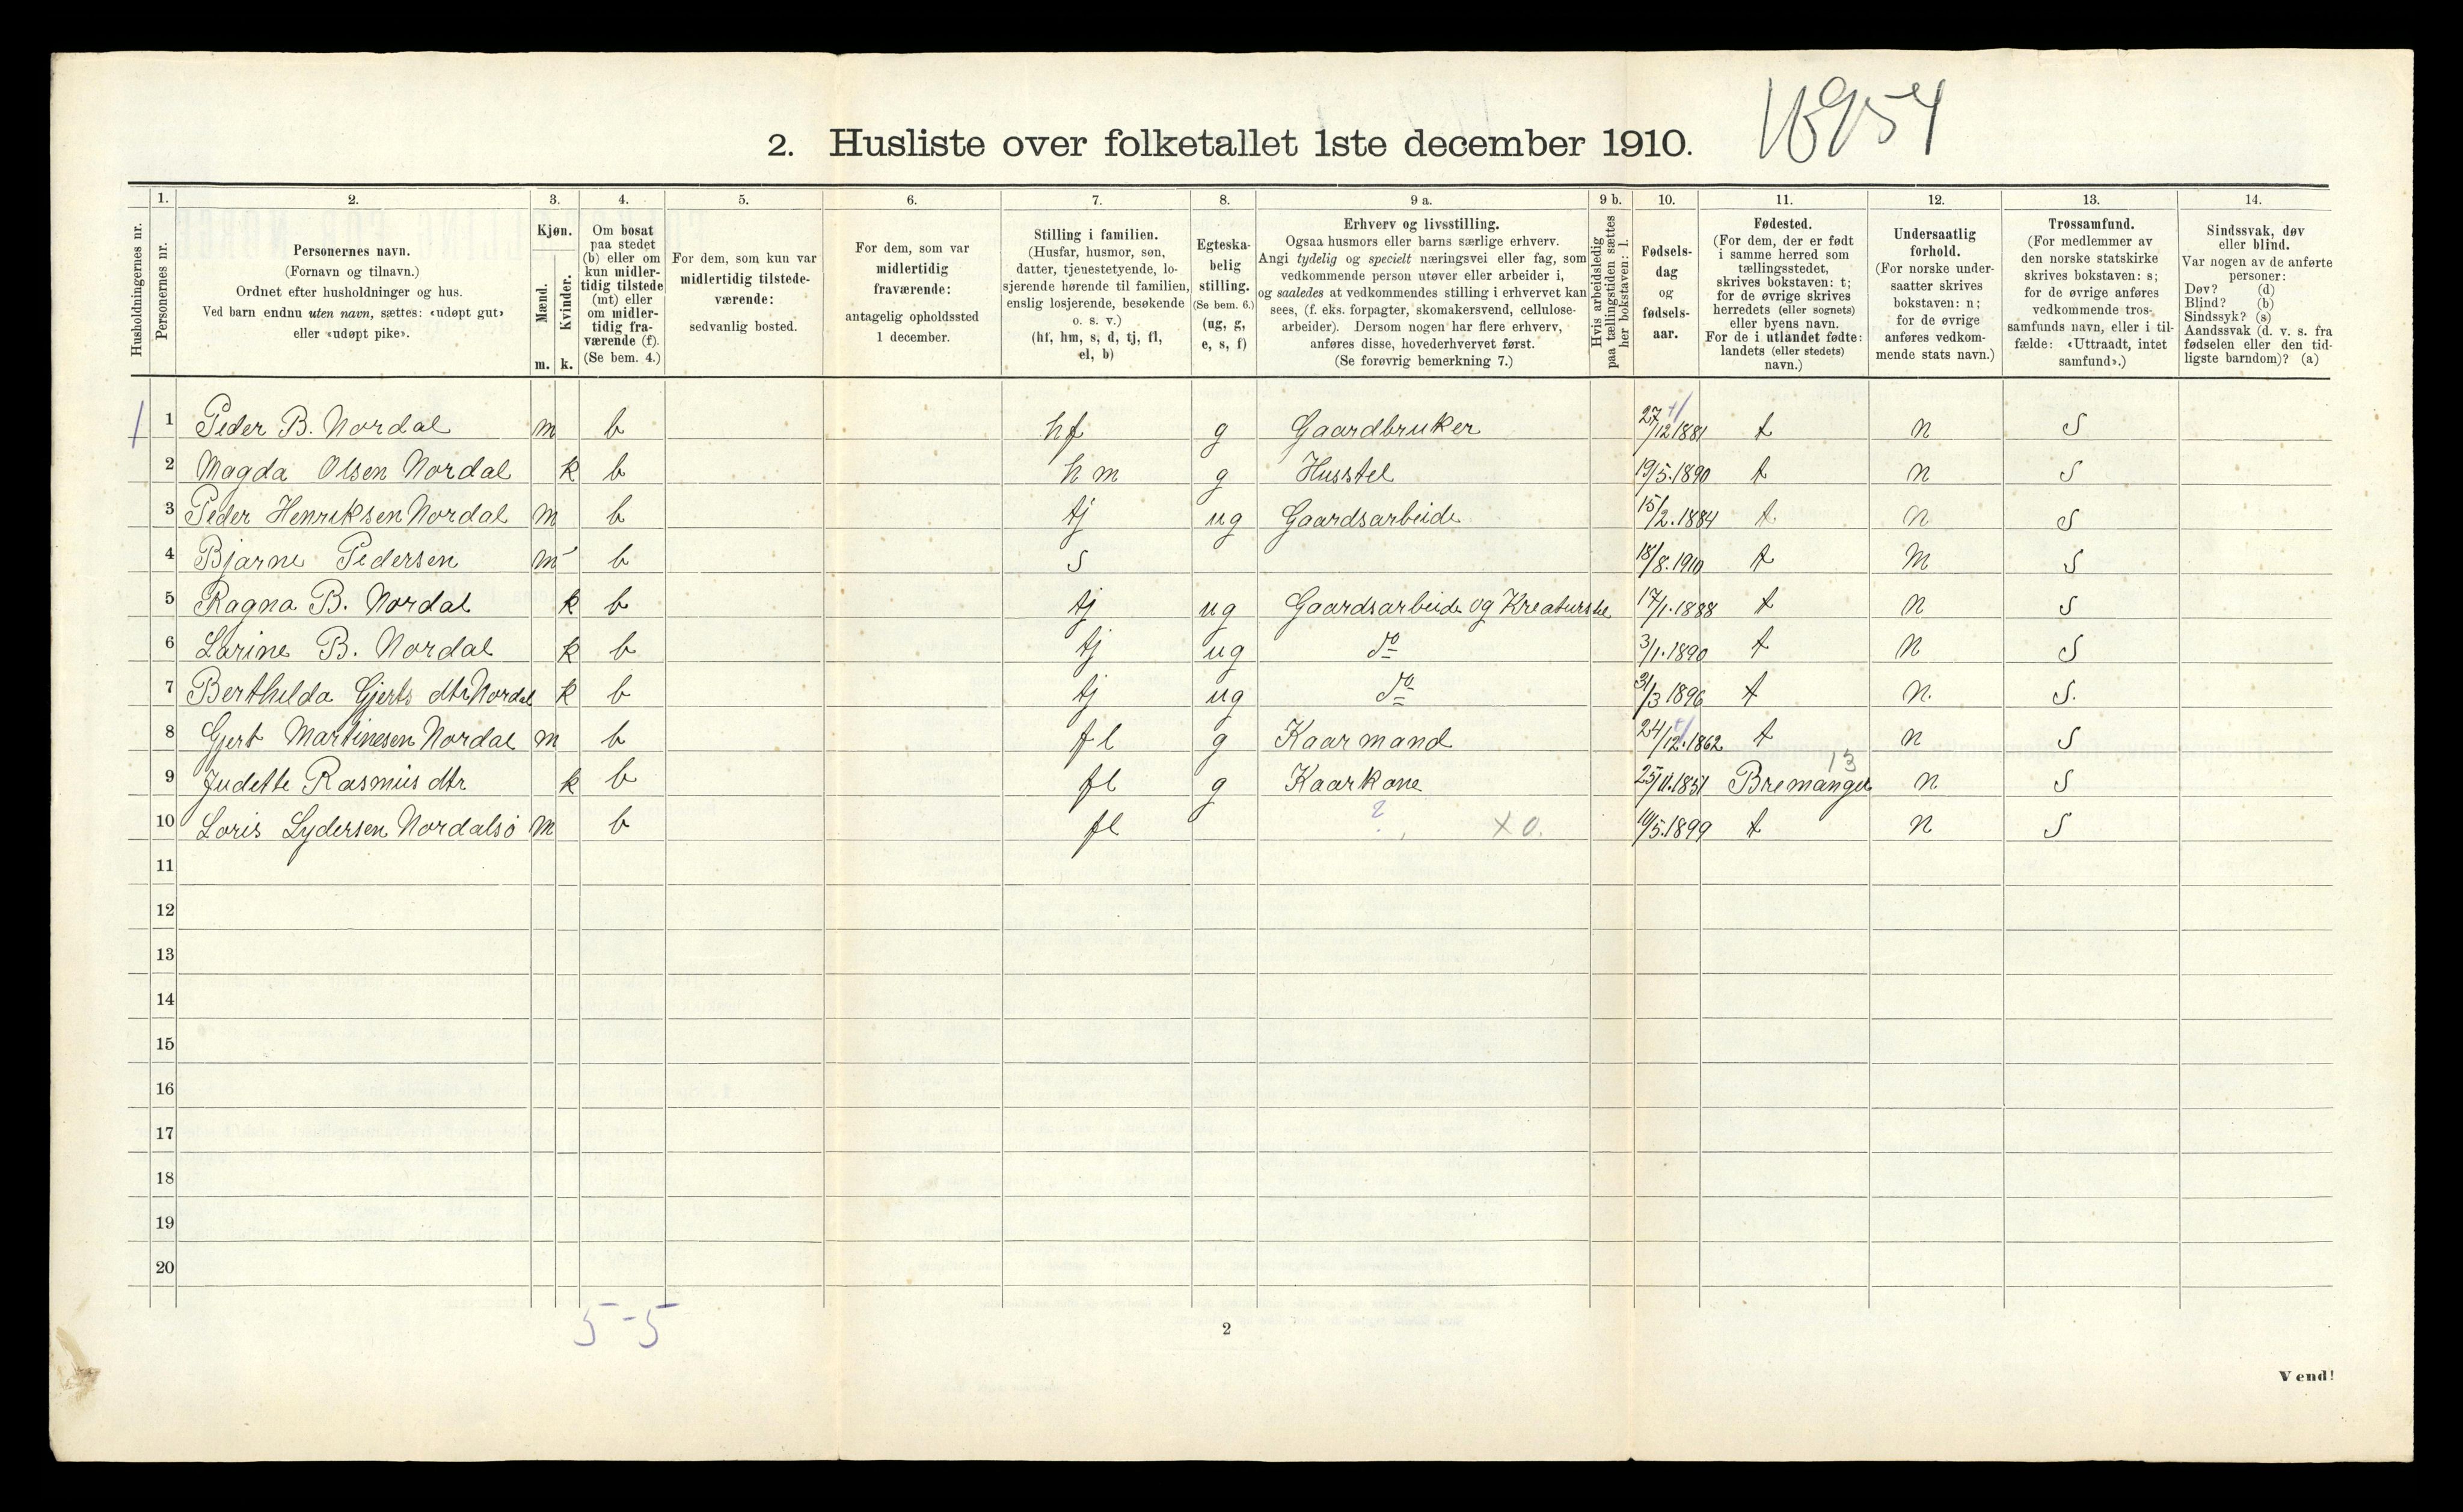 16954
2. Husliste over folketallet 1ste december 1910.
Husholdningernes nr.
1. Personernes nr.
2. Personernes navn.
(Fornavn og tilnavn.)
Ordnet efter husholdninger og hus.
Ved barn endnu uten navn, sættes: «udøpt gut»
eller «udøpt pike».
3. Kjøn.
Mænd. Kvinder.
m. k.
4. Om bosat
paa stedet
(b) eller om
kun midler-
tidig tilstede
(mt) eller
om midler-
tidig fra-
værende (f).
(Se bem. 4.)
5. For dem, som kun var
midlertidig tilstede-
værende:
sedvanlig bosted.
6. For dem, som var
midlertidig
fraværende:
antagelig opholdssted
1 december.
7. Stilling i familien.
(Husfar, husmor, søn,
datter, tjenestetyende, lo-
sjerende hørende til familien,
enslig losjerende, besøkende
o. s. v.)
(hf, hm, s, d, tj, fl,
el, b)
8. Egteska-
belig
stilling.
(Se bem. 6.)
(ug, g,
e, s, f)
9 a. Erhverv og livsstilling.
Ogsaa husmors eller barns særlige erhverv.
Angi tydelig og specielt næringsvei eller fag, som
vedkommende person utøver eller arbeider i,
og saaledes at vedkommendes stilling i erhvervet kan
sees, (f. eks. forpagter, skomakersvend, cellulose-
arbeider). Dersom nogen har flere erhverv,
anføres disse, hovederhvervet først.
(Se forøvrig bemerkning 7.)
9 b. Hvis arbeidsledig
paa tællingstiden sættes
her bokstaven: l.
10. Fødsels-
dag
og
fødsels-
aar.
11. Fødested.
(For dem, der er født
i samme herred som
tællingsstedet,
skrives bokstaven: t;
for de øvrige skrives
herredets (eller sognets)
eller byens navn.
For de i utlandet fødte:
landets (eller stedets)
navn.)
12. Undersaatlig
forhold.
(For norske under-
saatter skrives
bokstaven: n;
for de øvrige
anføres vedkom-
mende stats navn.)
13. Trossamfund.
(For medlemmer av
den norske statskirke
skrives bokstaven: s;
for de øvrige anføres
vedkommende tros-
samfunds navn, eller i til-
fælde: «Uttraadt, intet
samfund».)
14. Sindssvak, døv
eller blind.
Var nogen av de anførte
personer:
Døv? (d)
Blind? (b)
Sindssyk? (s)
Aandssvak (d. v. s. fra
fødselen eller den tid-
ligste barndom)? (a)
1 1 Peder B. Nordal m b hf g Gaardbruker 27/12 1881 t n S
2 Magda Olsen Nordal k b hm g Husstel 19/5.1890 t n S
3 Peder Henriksen Nordal m b tj ug Gaardsarbeide 15/2.1884 t n S
4 Bjarne Pedersen m b s 18/8.1910 t n S
5 Ragna B. Nordal k b tj ug Gaardsarbeide og Kreaturstel 17/1.1888 t n S
6 Larine B. Nordal k b tj ug do 3/1.1890 t n S
7 Berthilda Gjerts dtr Nordal k b tj ug do 31/3 1896 t n. S.
8 Gjert Martinesen Nordal m b fl g Kaarmand 24/12.1862 t n S
9 Judette Rasmus dtr k b fl g Kaarkone 25/11.1851 Bremanger 13 n S
10 Loris Lydersen Nordalsø m b fl ? X 0. 10/5.1899 t n S
11
12
13
14
15
16
17
18
19
20
5-5
2
Vend!